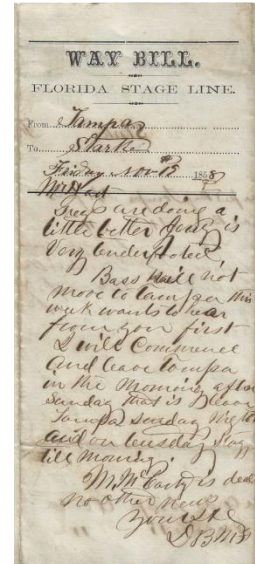 WAY BILL.
FLORIDA STAGE LINE.
From Tampa
To Starke
Friday Nov 12 1858
Mr Hart
Greys are doing a
little better is
Very tender footed
Bass will not
move to Tampa this
week wants to hear
from you first
I will Commence
and leave Tampa
in the Morning after
Sunday that is
Tampa Sunday Night
and on tuesday stay
till Morning.
M. McCarty is dead
no other News
Yours
D B